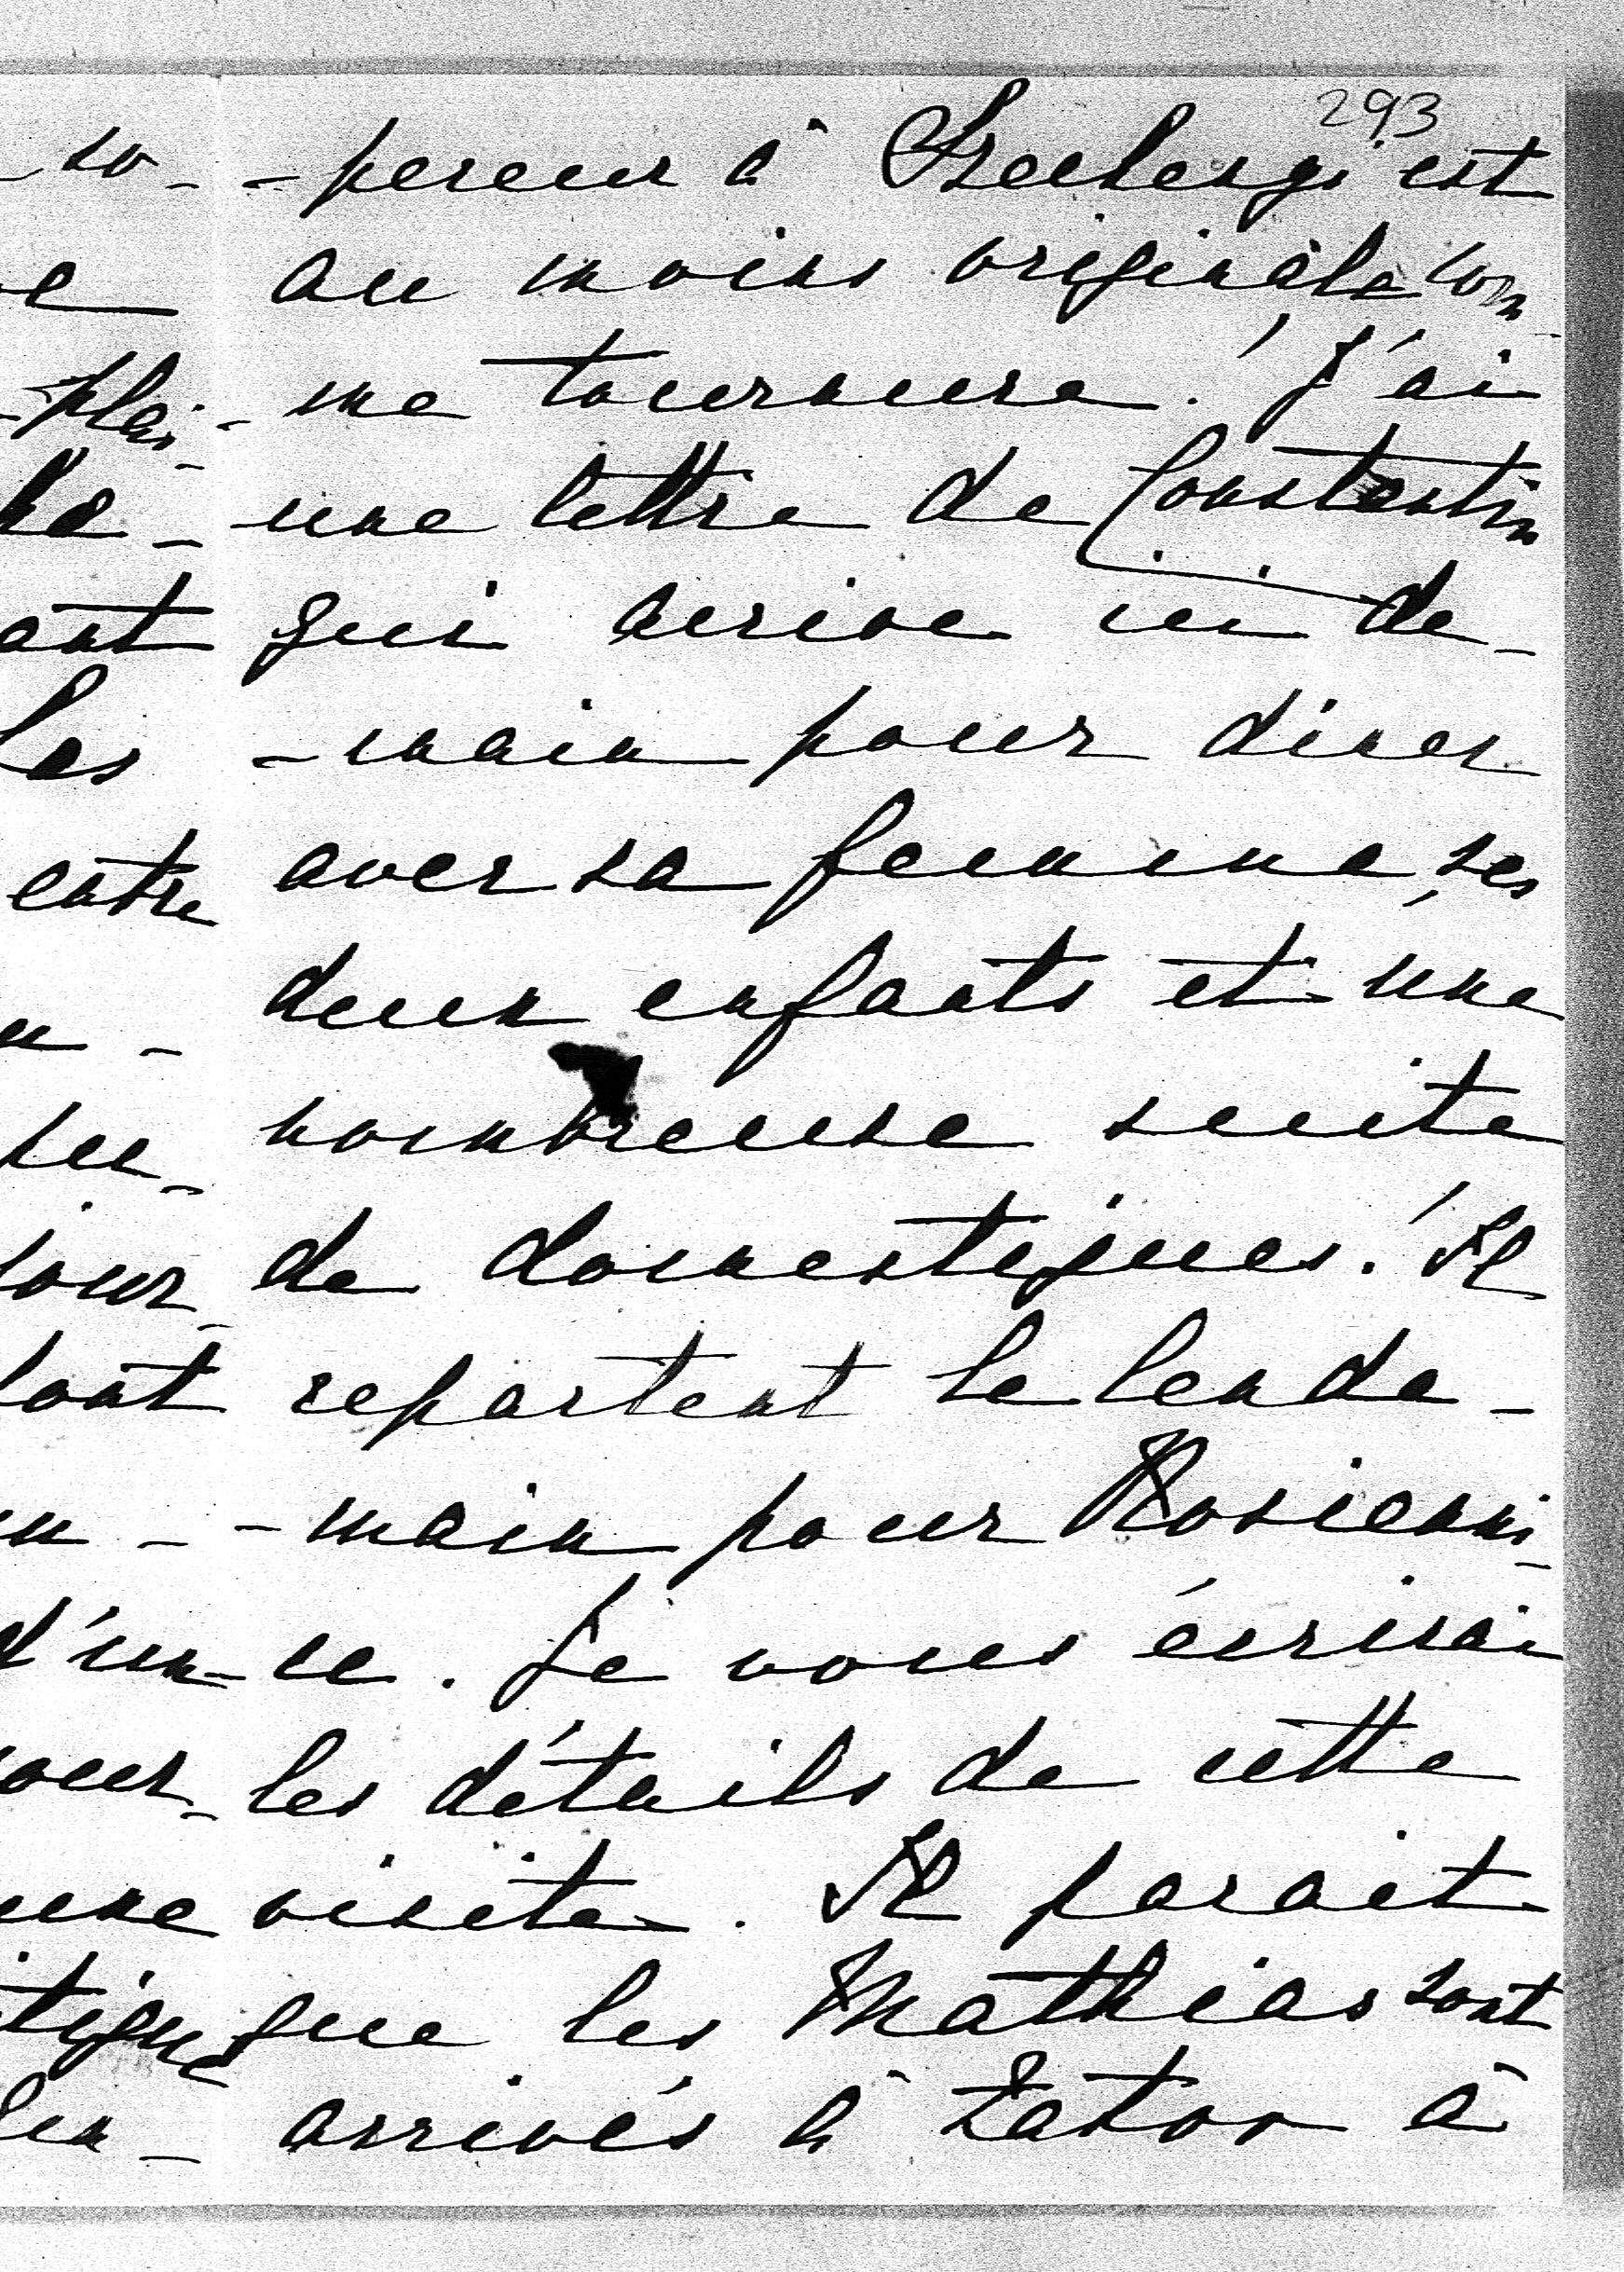 293
-pereur à est
au moins originale com
me tournure. J'ai
une lettre de Constantin
qui arrive ici de-
-main pour diner
avec sa femme, ses
deux enfants et une
nombreuse suite
de domestiques. Il
repartent le lende-
-main pour Rosienni-
-ce. Je vous écrirai
les détails de cette
visite. Il parait
que les Mathias sont
arrivés à Zator à
so-
e
-plai-
ant
les
entre
jour-
d'un
une
tique